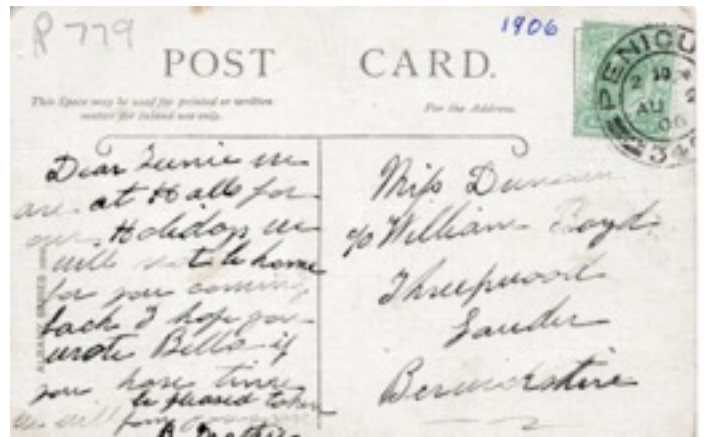 P 779
1906
POST CARD.
This Space may be used for printed or written
matter for Inland use only.
For the Address.
PENICU
AU
06
34
Dear we
are at Halls for
our Holidays we
will not be home
for you coming
back I hope you
wrote Bella if
you have time
be pleased to hear
we will from
Miss Duncan
c/o William Boyd
Threepwood
Lauder
Berwickshire